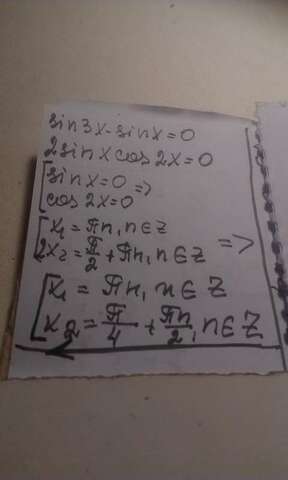 sin3x-sinx=0
2sinxcos2x=0
[sinx=0 =>
cos2x=0
[x₁=πn, n∈Z
2x₂=π/2+πn, n∈Z =>
[x₁=πn, n∈Z
x₂=π/4+πn/2, n∈Z